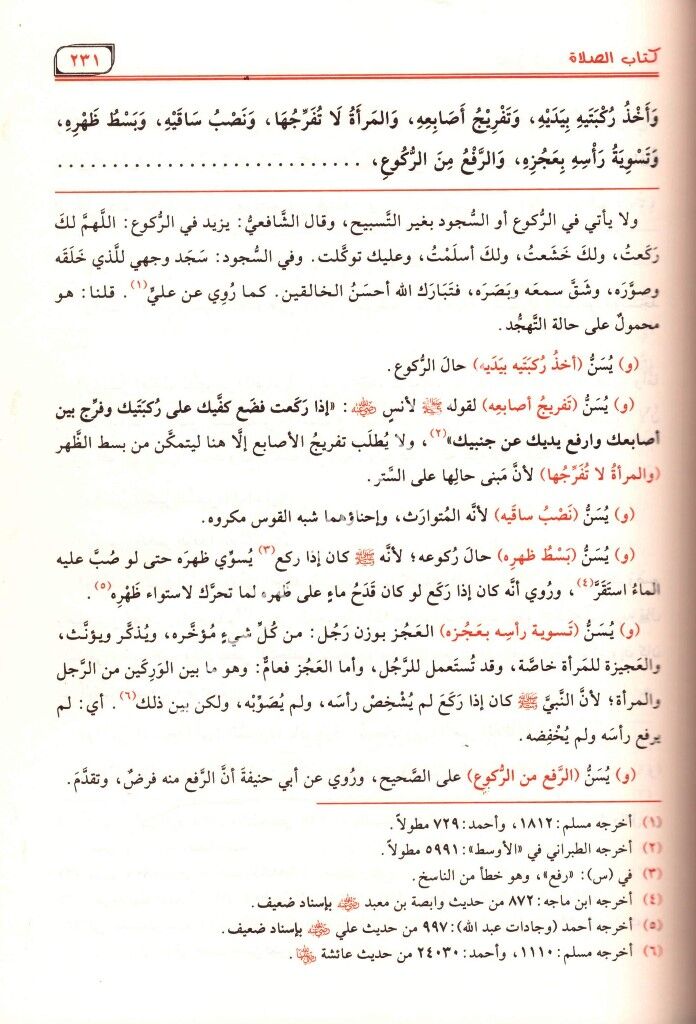 كتاب الصلاة
٢٣١
وَأَخْذُ رُكْبَتَيهِ بِيَدَيْهِ، وَتَفْرِيْجُ أَصَابِعِهِ، وَالمَرأَةُ لَا تُفَرِّجُهَا، وَنَصْبُ سَاقَيْهِ، وَبَسْطُ ظَهْرِهِ،
وَتَسْوِيَةُ رَأْسِهِ بِعَجُزِهِ، وَالرَّفْعُ مِنَ الرُّكُوعِ، ............................
ولا يأتي في الرُّكوع أو السُّجود بغير التَّسبيح، وقال الشَّافعيُّ: يزيد في الركوع: اللَّهمَّ لكَ
رَكَعتُ، ولكَ خَشَعتُ، ولكَ أسلَمْتُ، وعليك توكَّلت. وفي السُّجود: سَجَد وجهي للَّذي خَلَقَه
وصوَّرَه، وشَقَّ سمعَه وبَصَرَه، فتَبَارَك الله أحسَنُ الخالقين. كما رُوِي عن عليٍّ(١). قلنا: هو
محمولٌ على حالة التَّهجُّد.
(و) يُسَنُّ (أخذُ رُكبَتَيه بيَدَيه) حالَ الرُّكوع.
(و) يُسَنُّ (تَفريجُ أصابعِه) لقوله ﷺ لأنسٍ رضي الله عنه: «إذا رَكَعت فضَع كفَّيك على رُكبَتَيك وفرِّج بين
أصابعك وارفع يديك عن جنبيك»(٢)، ولا يُطلَب تفريجُ الأصابع إلَّا هنا ليتمكَّن من بسط الظَّهر
(والمرأةُ لا تُفَرِّجُها) لأنَّ مَبنى حالِها على السَّتر.
(و) يُسَنُّ (نَصْبُ ساقَيه) لأنَّه المُتوارَث، وإحناؤهما شبه القوس مكروه.
(و) يُسَنُّ (بَسْطُ ظهرِه) حالَ رُكوعه؛ لأنَّه ﷺ كان إذا ركع(٣) يُسوِّي ظهرَه حتى لو صُبَّ عليه
الماءُ استَقَرَّ(٤)، ورُوي أنَّه كان إذا رَكَع لو كان قَدَحُ ماءٍ على ظَهره لما تحرَّك لاستواء ظَهْرِه(٥).
(و) يُسَنُّ (تَسوية رأسِه بعَجُزه) العَجُز بوزن رَجُل: من كُلِّ شيءٍ مُؤخَّره، ويُذكَّر ويؤنَّث،
والعَجيزة للمَرأة خاصَّة، وقد تُستَعمل للرَّجُل، وأما العَجُز فعامٌّ: وهو ما بين الوَرِكَين من الرَّجل
والمرأة؛ لأنَّ النَّبيَّ ﷺ كان إذا رَكَعَ لم يُشْخِصْ رأسَه، ولم يُصَوِّبْه، ولكن بين ذلك(٦). أي: لم
يرفع رأسَه ولم يُخْفِضه.
(و) يُسَنُّ (الرَّفع من الرُّكوع) على الصَّحيح، ورُوي عن أبي حنيفةَ أنَّ الرَّفع منه فرضٌ، وتقدَّمَ.
(١) أخرجه مسلم: ١٨١٢، وأحمد: ٧٢٩ مطولاً.
(٢) أخرجه الطبراني في «الأوسط»: ٥٩٩١ مطولاً.
(٣) في (س): «رفع»، وهو خطأ من الناسخ.
(٤) أخرجه ابن ماجه: ٨٧٢ من حديث وابصة بن معبد رضي الله عنه بإسناد ضعيف.
(٥) أخرجه أحمد (وجادات عبد الله): ٩٩٧ من حديث علي رضي الله عنه بإسناد ضعيف.
(٦) أخرجه مسلم: ١١١٠، وأحمد: ٢٤٠٣٠ من حديث عائشة رضي الله عنها.